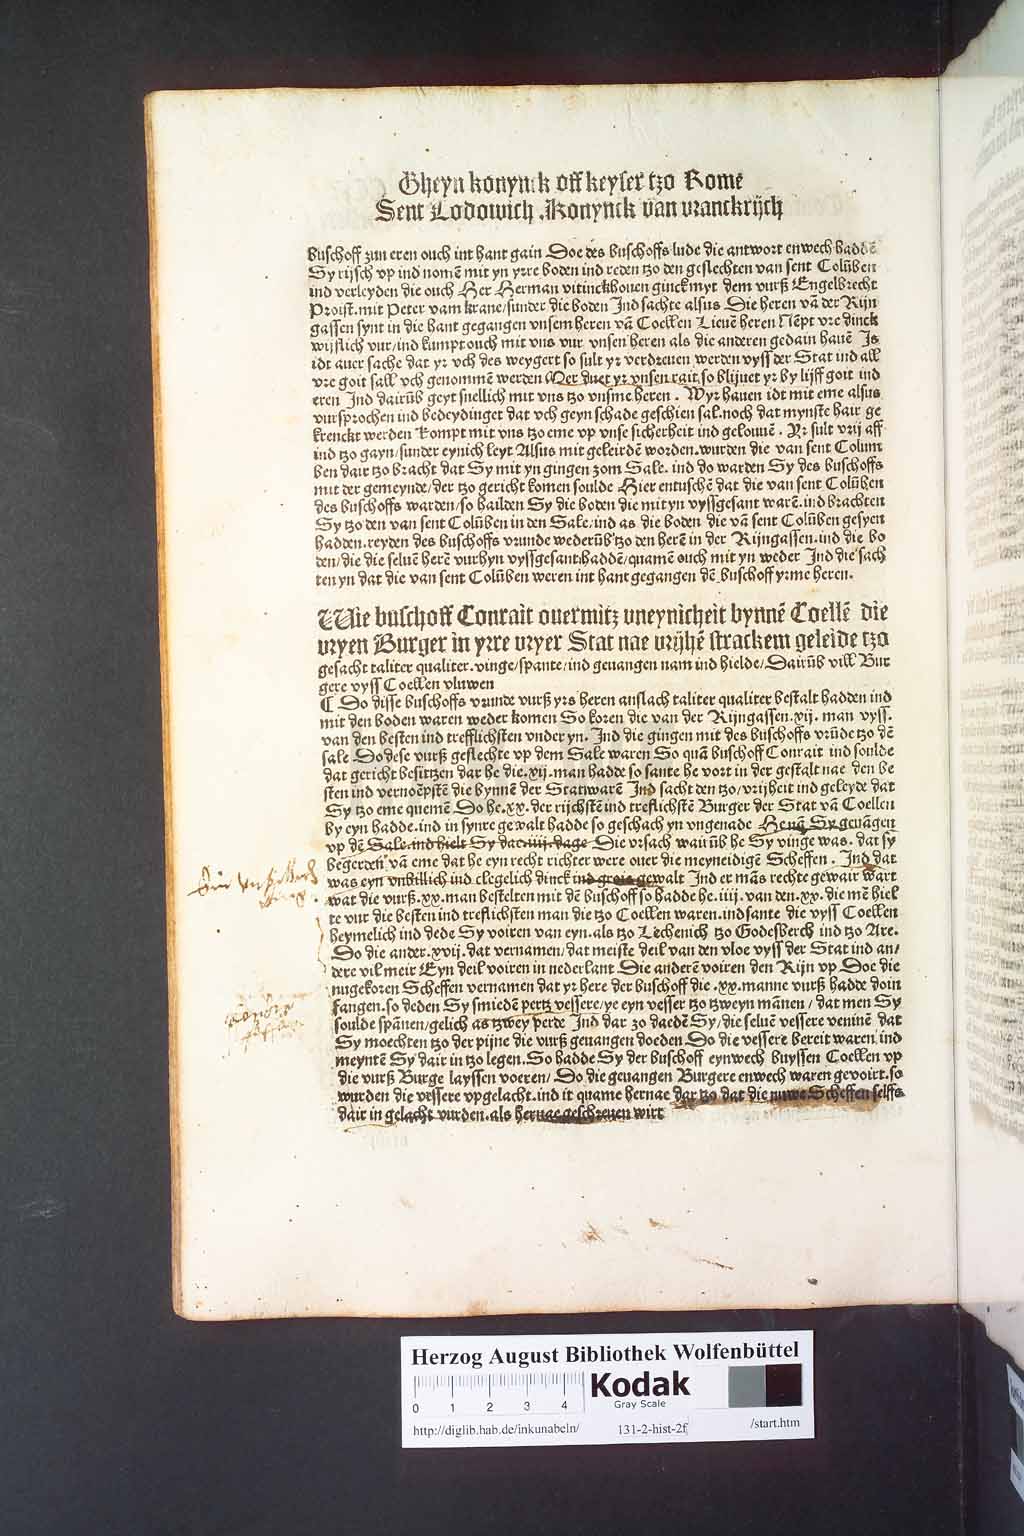 Gheyn konynck off keyser tzo Rome
Sent Lodowich .Konynck van vranckrijch
buschoff zun eren ouch int hant gain Doe des buschoffs lude die antwort enwech haddē
Sy rijsch vp ind nomē mit yn yrre boden ind reden tzo den geslechten van sent Colūben
ind verleyden die ouch Her Herman vitinckhouen ginck myt dem vurß Engelbrecht
Proist. mit Peter vam krane/sunder die boden Ind sachte alsus Die heren vā der Rijn
gassen synt in die hant gegangen vnsem heren vā Coellen Lieuē heren Nēpt vre dinck
wijslich vur/ind kumpt ouch mit vns vur vnsen heren als die anderen gedain hauē Is
idt auer sache dat yr vch des weygert so sult yr verdreuen werden vyss der Stat ind all
vre goit sall vch genommē werden Mer duet yr vnsen rait, so blijuet yr by lijff goit ind
eren Ind dairūb geyt snellich mit vns tzo vnsme heren . Wyr hauen idt mit eme alsus
vursprochen ind bedeydinget dat vch geyn schade geschien sal. noch dat mynste hair ge
krenckt werden Kompt mit vns tzo eme vp vnse sicherheit ind gelouuē . Yr sult vrij aff
ind tzo gayn/sunder eynich leyt Alsus mit geleirdē worden. wurden die van sent Colum
ben dair tzo bracht dat Sy mit yn gingen zom Sale. ind do warden Sy des buschoffs
mit der gemeynde/der tzo gericht komen soulde Hier entuschē dat die van sent Colūben
des buschoffs warden/so hailden Sy die boden die mit yn vyssgesant warē. ind brachten
Sy tzo den van sent Colūben in den Sale/ind as die boden die vā sent Colūben gesyen
hadden. reyden des buschoffs vrunde wederūb tzo den herē in der Rijngassen. ind die bo
den/die die seluē herē vurhyn vyssgesant haddē/quamē ouch mit yn weder Ind die sach
ten yn dat die van sent Colūben weren int hant gegangen dē buschoff yrme heren.
Wie buschoff Conrait ouermitz vneynicheit bynnē Coellē die
vryen Burger in yrre vryer Stat nae vrijhē strackem geleide tzo
gesacht taliter qualiter. vinge/spante/ind geuangen nam ind hielde/Dairūb vill Bur
gere vyss Coellen vluwen
¶ Do disse buschoffs vrunde vurß yrs heren anslach taliter qualiter bestalt hadden ind
mit den boden waren weder komen So koren die van der Rijngassen .xij. man vyss.
van den besten ind trefflichsten vnder yn. Ind die gingen mit des buschoffs vrūde tzo dē
sale Do dese vurß geslechte vp dem Sale waren So quā buschoff Conrait ind soulde
dat gericht besittzen dar he die .xij. man hadde so sante he vort in der gestalt nae den be
sten ind vernoēpstē die bynnē der Stat warē Ind sacht den tzo/vrijheit ind geleyde dat
Sy tzo eme quemē Do he .xx. der rijchstē ind treflichstē Burger der Stat vā Coellen
by eyn hadde. ind in synre gewalt hadde so geschach yn vngenade He nā Sy geuāgen
vp dē Sale ind hielt Sy dar .iiij. dage Die vrsach warūb he Sy vinge was. dat sy
begerden vā eme dat he eyn recht richter were ouer die meyneidigē Scheffen . Ind dat
was eyn vnbillich ind clegelich dinck ind grois gewalt Ind er mās rechte gewair wart
wat die vurß .xx. man bestelten mit dē buschoff so hadde he .iiij. van den .xx. die mē hiel
te vur die besten ind treflichsten man die tzo Coellen waren. ind sante die vyss Coellen
heymelich ind dede Sy voiren van eyn. als tzo Lechenich tzo Godesberch ind tzo Are.
Do die ander .xvij. dat vernamen/dat meiste deil van den vloe vyss der Stat ind an/
dere vil meir Eyn deil voiren in nederlant Die anderē voiren den Rijn vp Doe die
nugekoren Scheffen vernamen dat yr here der buschoff die .xx. manne vurß hadde doin
fangen. so deden Sy smiedē pertz vessere/ye eyn vesser tzo tzweyn mānen/dat men Sy
soulde spānen/gelich as tzwey perde Ind dar zo daedē Sy/die seluē vessere veninē dat
Sy moechten tzo der pijne die vurß geuangen doeden Do die vessere bereit waren ind
meyntē Sy dair in tzo legen. So hadde Sy der buschoff eynwech buyssen Coellen vp
die vurß Burge layssen voeren/ Do die geuangen Burgere enwech waren gevoirt. so
wurden die vessere vpgelacht. ind it quame hernae dar tzo dat die nuwe Scheffen selffs
dair in gelacht wurden. als hernae geschreuen wirt
Herzog August Bibliothek Wolfenbüttel
0 1 2 3 4
Kodak
Gray Scale
http://diglib.hab.de/inkunabeln/ 131-2-hist-2f /start.htm